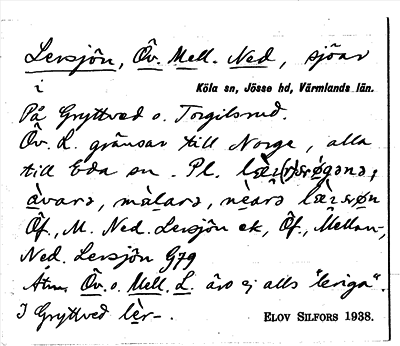 Lersjön, Öv. Mell. Ned, sjöar
i
Köla sn, Jösse hd, Värmlands län.
På Gryttved o. Torgilsrud.
Öv. L. gränsar till Norge, alla
till Eda sn. Pl.
Öf., M. Ned. Lersjön ek, Öf., Mellan-,
Ned. Lersjön G79
Åtm. Öv. o. Mell. L. äro ej alls "leriga".
I Gryttved lèr-.
ELOV SILFORS 1938.